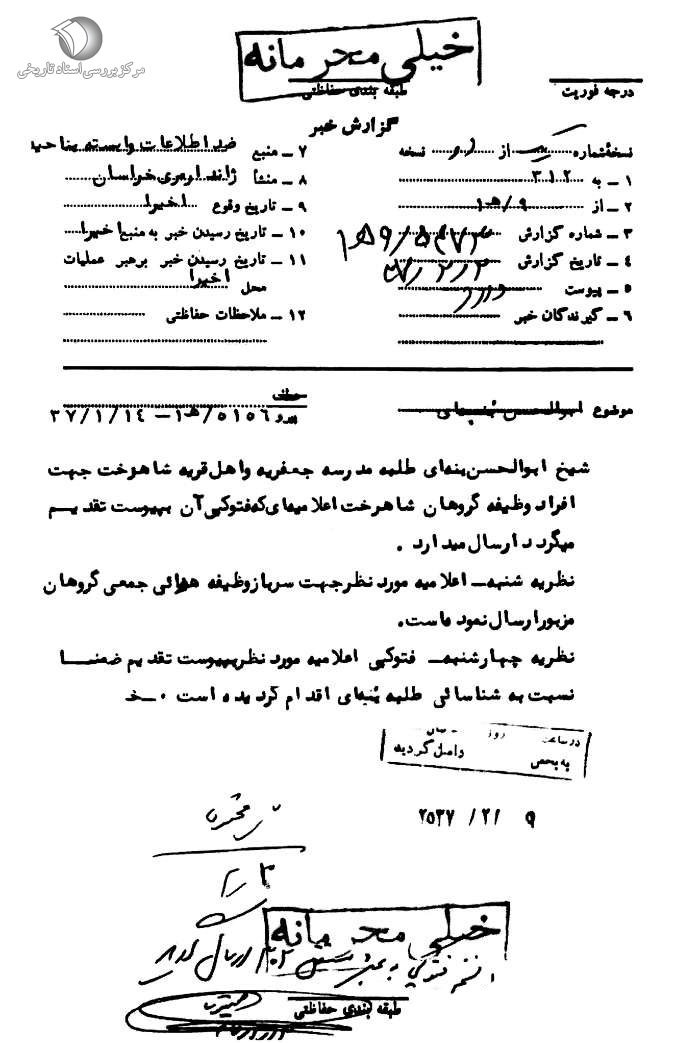 مرکز بررسی اسناد تاریخی
خیلی محرمانه
طبقه بندی حفاظتی
درجه فوریت
گزارش خبر
نسخه شماره از نسخه
۱ ـ به ۳۱۲
۲ ـ از ۹/هـ۱
۳ ـ شماره گزارش
۴ ـ تاریخ گزارش ۳۷/۲/۳
۵ ـ پیوست دارد
۶ ـ گیرندگان خبر
۷ ـ منبع ضد اطلاعات وابسته بناحیه
۸ ـ منشأ ژاندارمری خراسان
۹ ـ تاریخ وقوع اخیرا
۱۰ ـ تاریخ رسیدن خبر به منبع اخیرا
۱۱ ـ تاریخ رسیدن خبر برهبر عملیات
محل اخیرا
۱۲ ـ ملاحظات حفاظتی
موضوع ابوالحسن پنبه‌ای
عطف
پیرو ۵۱۵۶/هـ۱ ـ ۳۷/۱/۱۴
شیخ ابوالحسن پنبه‌ای طلبه مدرسه جعفریه واهل قریه شاهرخت جهت
افراد وظیفه گروهان شاهرخت اعلامیه‌ای که فتوکپی آن بپیوست تقدیـم
میگردد ارسال میدارد .
نظریه شنبه ـ اعلامیه مورد نظر جهت سرباز وظیفه هوائی جمعی گروهان
مزبور ارسال نموده است.
نظریه چهارشنبه ـ فتوکپی اعلامیه مورد نظر بپیوست تقدیم ضمنـــا
نسبت به شناسائی طلبه پنبه‌ای اقدام گردیده است ۰ ـ خـ
در ساعت روز
به بخش واصل گردید
۹ /۲/ ۲۵۳۷
خیلی محرمانه
طبقه بندی حفاظتی